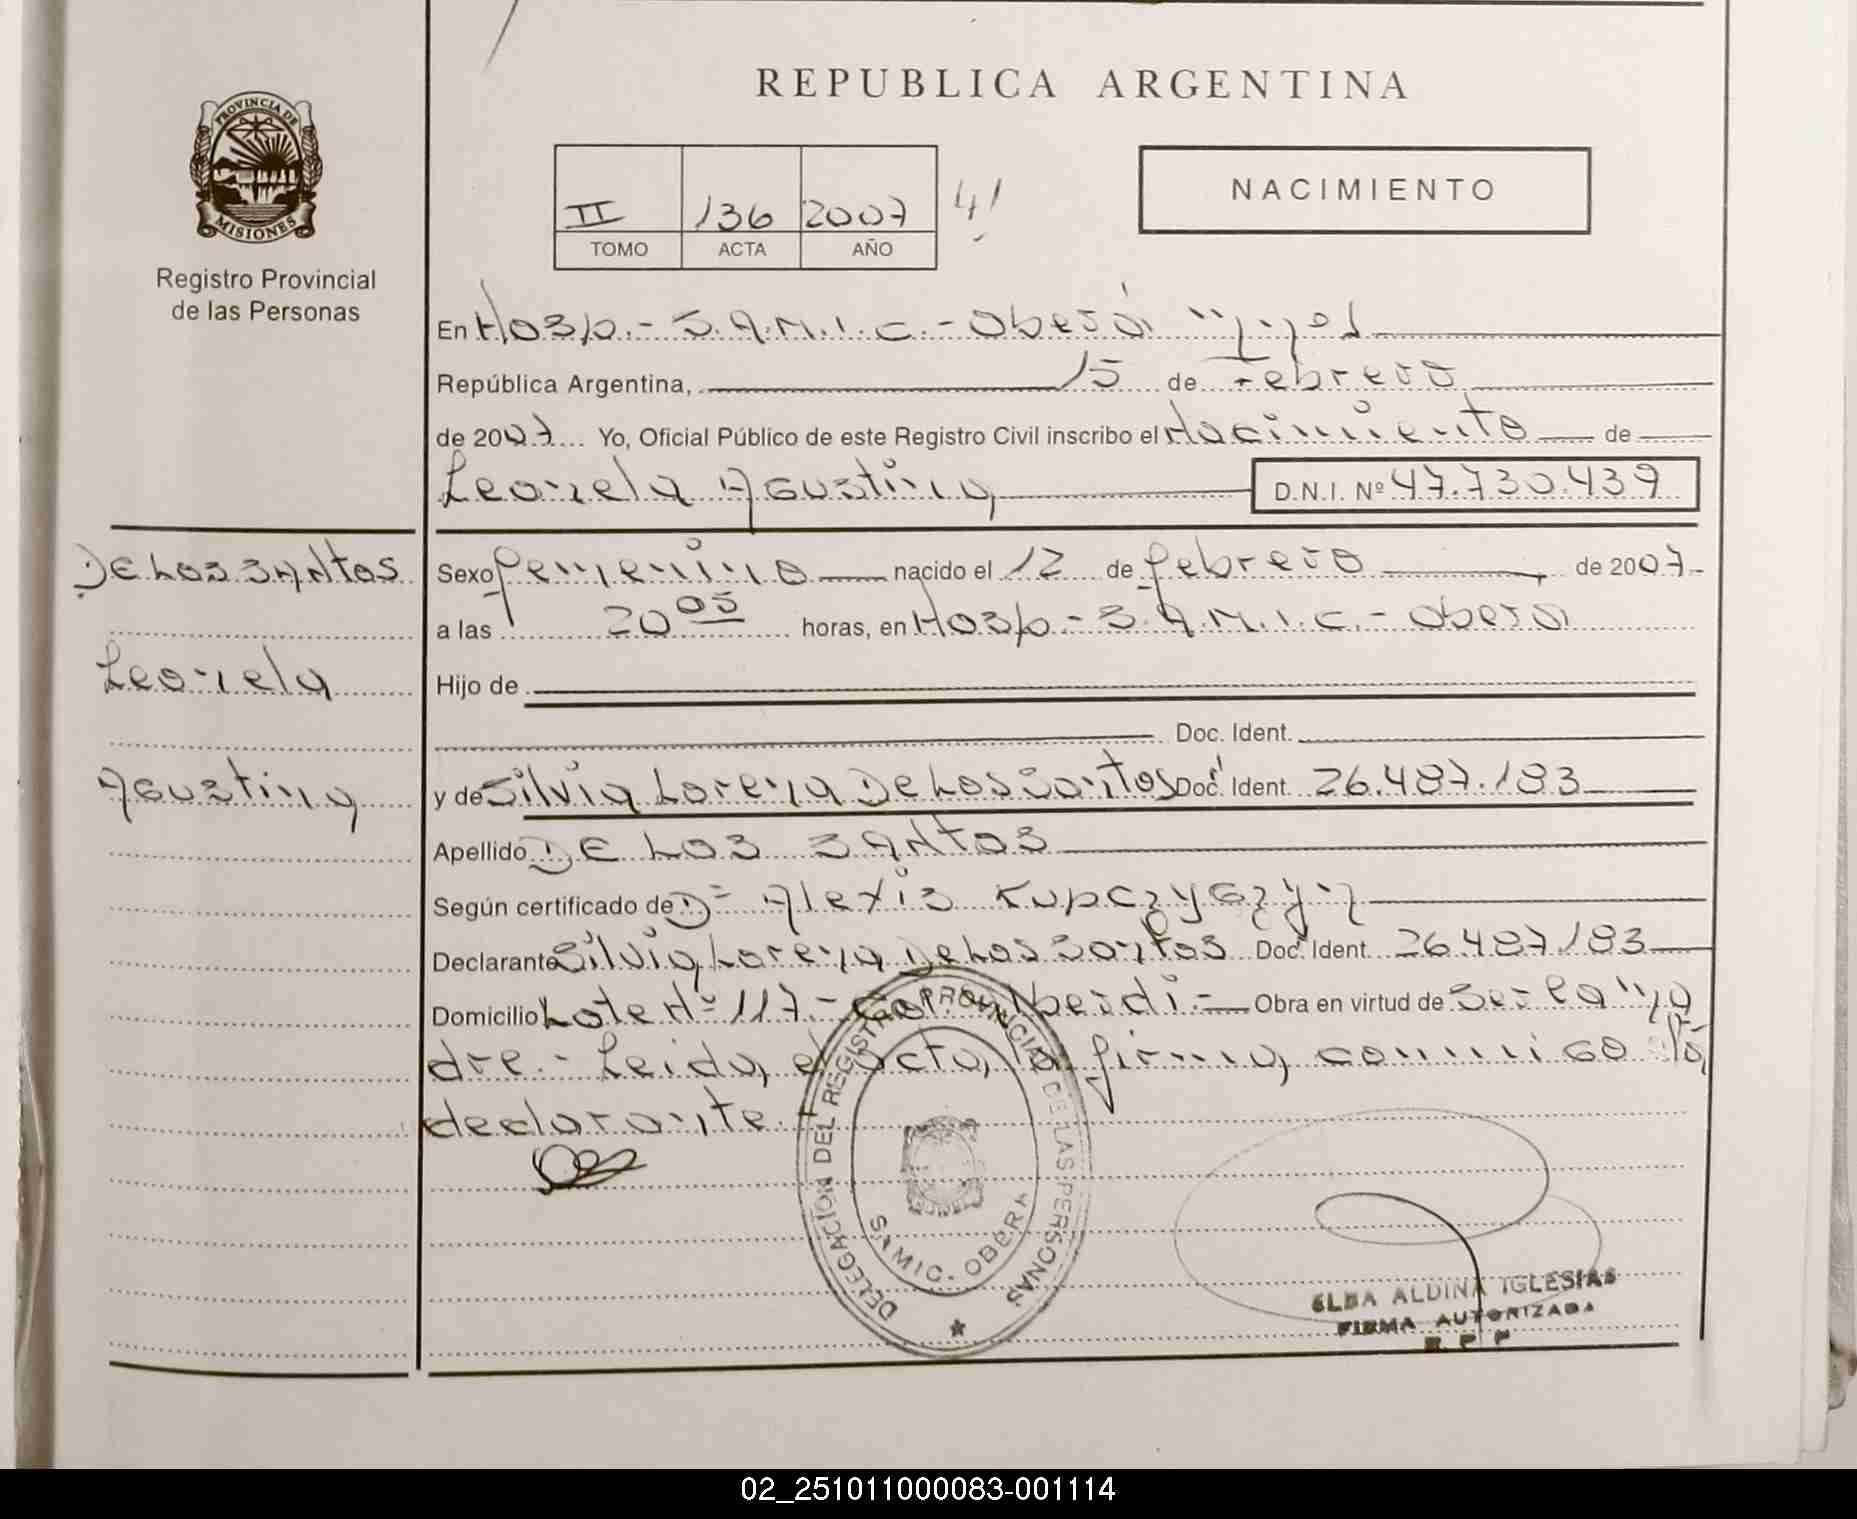 REPUBLICA ARGENTINA
PROVINCIA DE
MISIONES
Registro Provincial
de las Personas
II 136 2007 41
TOMO ACTA AÑO
NACIMIENTO
En Hosp.- S.A.M.I.C.- Oberá
República Argentina, 15 de Febrero
de 2007 Yo, Oficial Público de este Registro Civil inscribo el Nacimiento de
Leonela Agustina D.N.I. Nº 47.730.439
De Los Santos
Leonela
Agustina
Sexo femenino nacido el 12 de febrero de 2007
a las 20 05 horas, en Hosp.- S.A.M.I.C.- Oberá
Hijo de
Doc. Ident.
y de Silvia Lorena De Los Santos Doc. Ident. 26.487.183
Apellido DE LOS SANTOS
Según certificado de Dr Alexis Kupczyszyn
Declarante Silvia Lorena De Los Santos Doc. Ident. 26.487.183
Domicilio Lote Nº 117- Col. Alberdi.- Obra en virtud de Ser la Ma
dre.- Leida el acta, la firma conmigo la
declarante.
DELEGACION DEL REGISTRO PROVINCIAL DE LAS PERSONAS
SAMIC - OBERA
ELBA ALDINA IGLESIAS
FIRMA AUTORIZADA
R P P
02_251011000083-001114